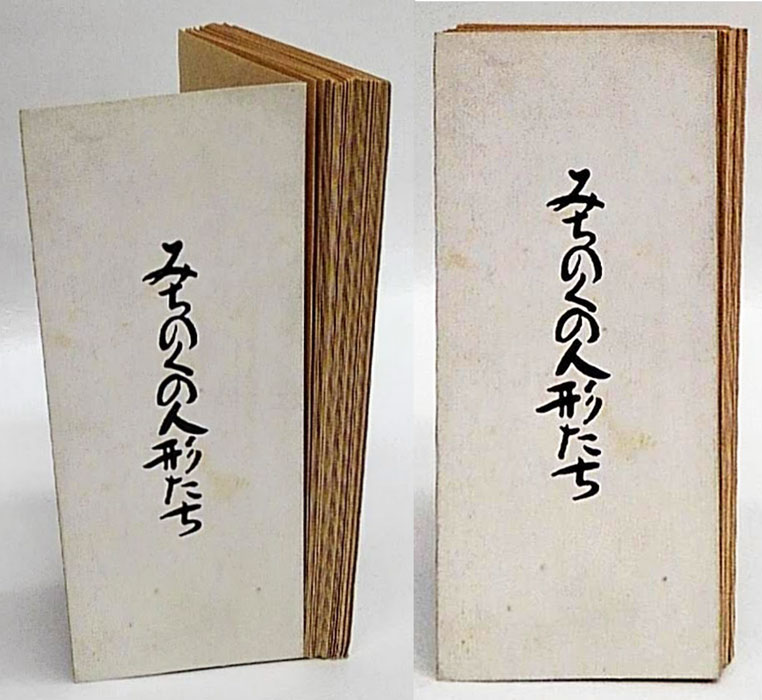 みちのくの人形たち
みちのくの人形たち